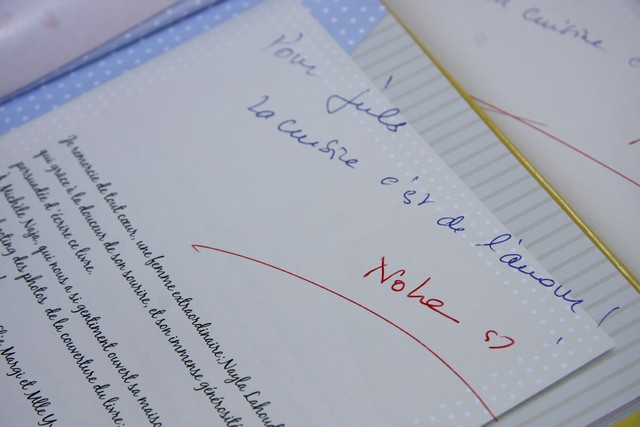 Pour Juls !
La cuisine c'est de l'amour !
Nohe
Je remercie de tout cœur, une femme extraordinaire, Nayla Lahoud
qui grâce à la douceur de son sourire, et son immense générosité
persuadée d'écrire ce livre.
À Michèle Naja, qui nous a si gentiment ouvert sa maison
des photos de la couverture du livre
Margi et Mlle Y
cuisine